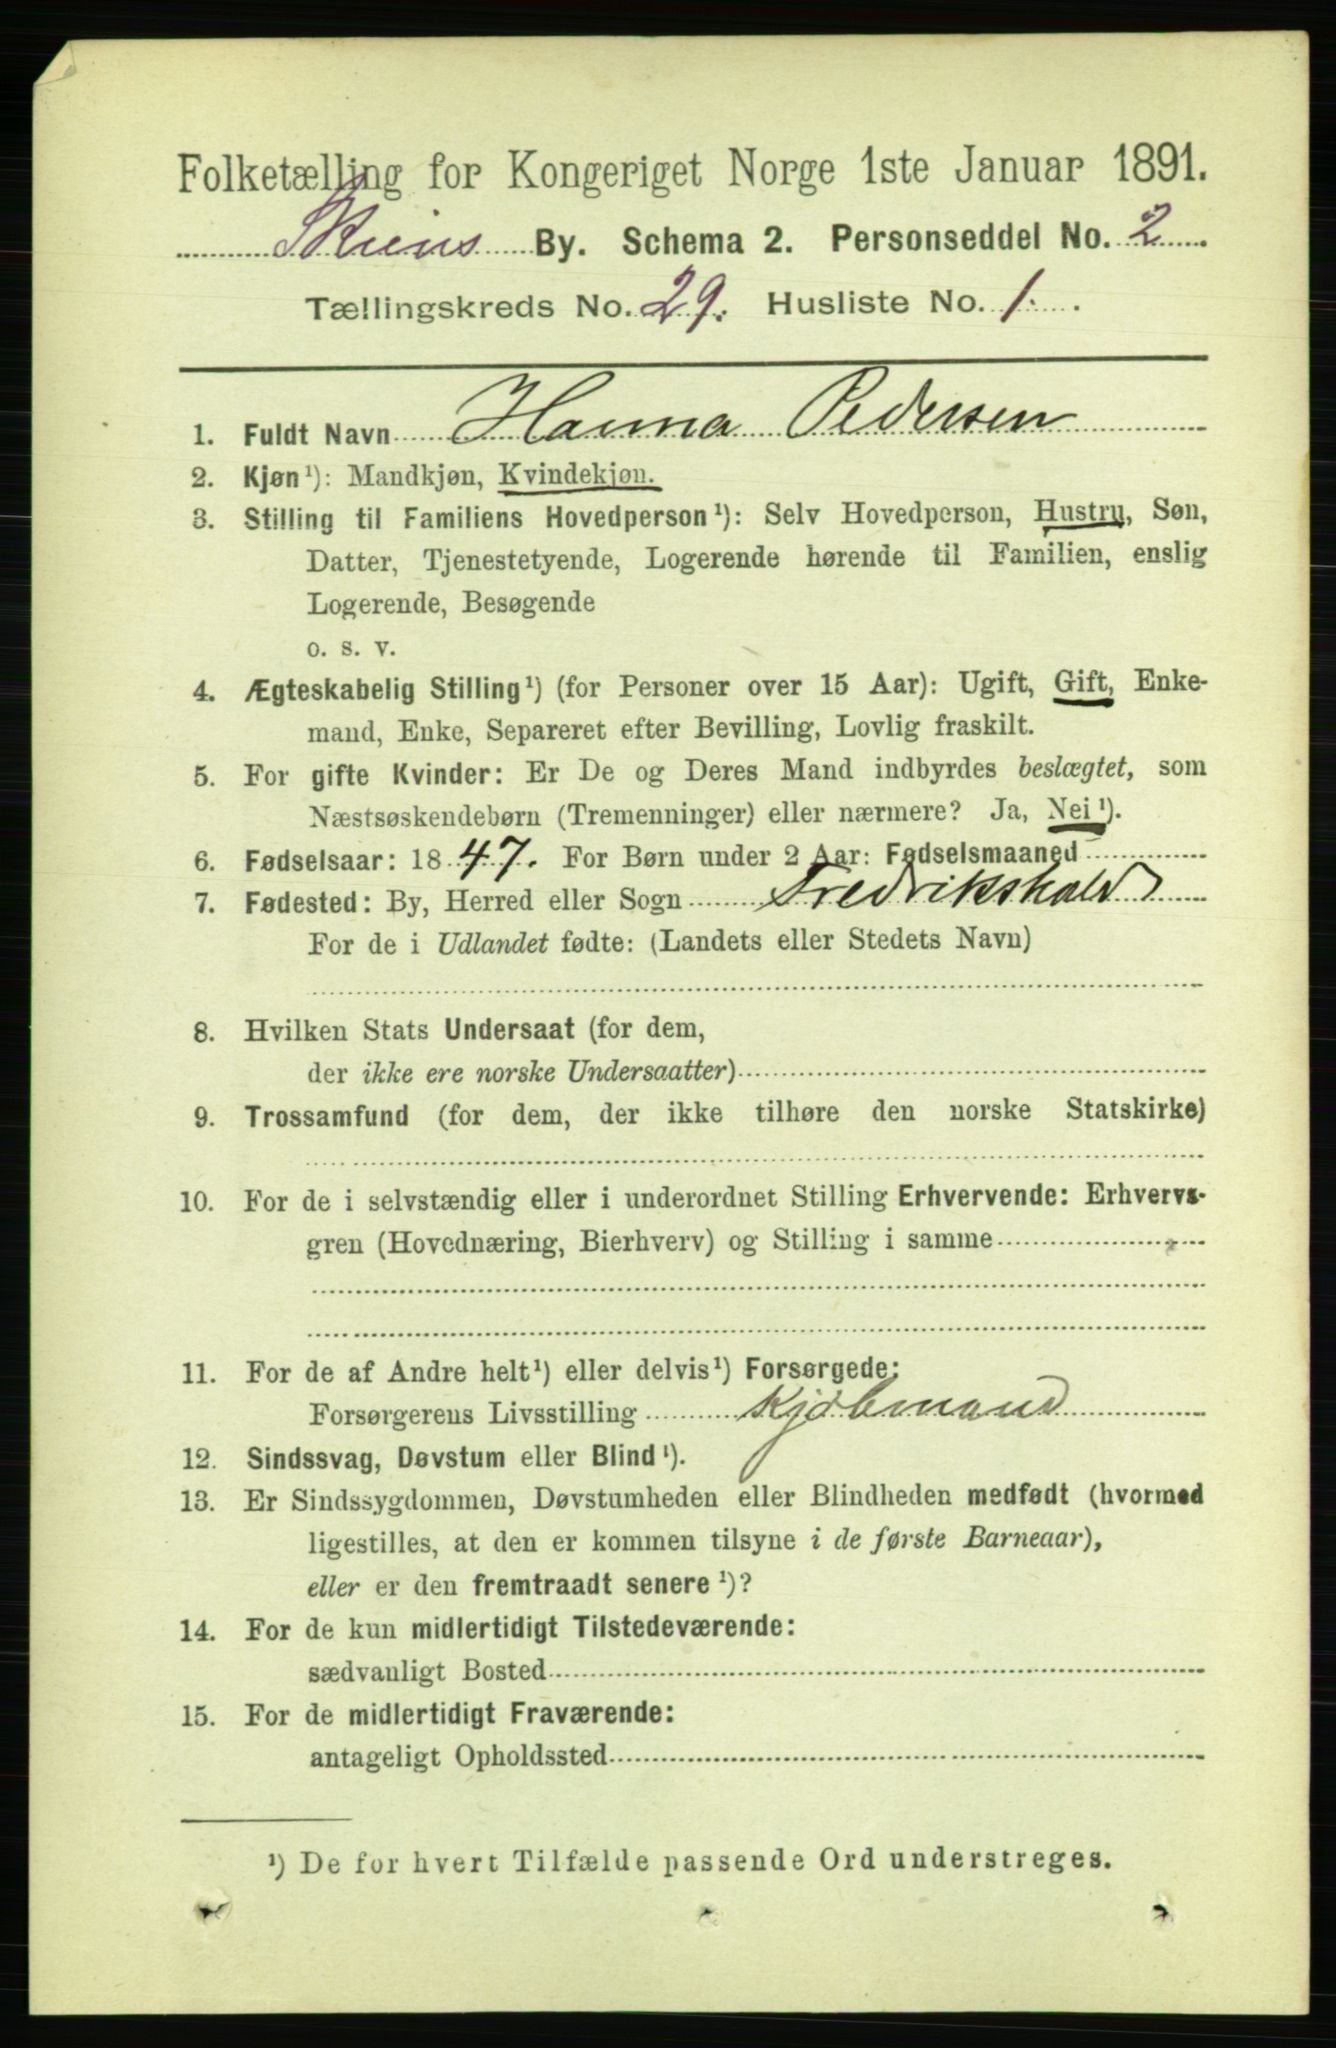 Folketælling for Kongeriget Norge 1ste Januar 1891.
Skiens By. Schema 2. Personseddel No. 2
Tællingskreds No. 29. Husliste No. 1.
1. Fuldt Navn Hanna Pedersen
2. Kjøn¹): Mandkjøn, Kvindekjøn.
3. Stilling til Familiens Hovedperson¹): Selv Hovedperson, Hustru, Søn,
Datter, Tjenestetyende, Logerende hørende til Familien, enslig
Logerende, Besøgende
o. s. v.
4. Ægteskabelig Stilling¹) (for Personer over 15 Aar): Ugift, Gift, Enke-
mand, Enke, Separeret efter Bevilling, Lovlig fraskilt.
5. For gifte Kvinder: Er De og Deres Mand indbyrdes beslægtet, som
Næstsøskendebørn (Tremenninger) eller nærmere? Ja, Nei¹).
6. Fødselsaar: 1847. For Børn under 2 Aar: Fødselsmaaned
7. Fødested: By, Herred eller Sogn Fredrikshald
For de i Udlandet fødte: (Landets eller Stedets Navn)
8. Hvilken Stats Undersaat (for dem,
der ikke ere norske Undersaatter)
9. Trossamfund (for dem, der ikke tilhøre den norske Statskirke)
10. For de i selvstændig eller i underordnet Stilling Erhvervende: Erhvervs-
gren (Hovednæring, Bierhverv) og Stilling i samme
11. For de af Andre helt¹) eller delvis¹) Forsørgede:
Forsørgerens Livsstilling Kjøbmand
12. Sindssvag, Døvstum eller Blind¹).
13. Er Sindssygdommen, Døvstumheden eller Blindheden medfødt (hvormed
ligestilles, at den er kommen tilsyne i de første Barneaar),
eller er den fremtraadt senere¹)?
14. For de kun midlertidigt Tilstedeværende:
sædvanligt Bosted
15. For de midlertidigt Fraværende:
antageligt Opholdssted
¹) De for hvert Tilfælde passende Ord understreges.